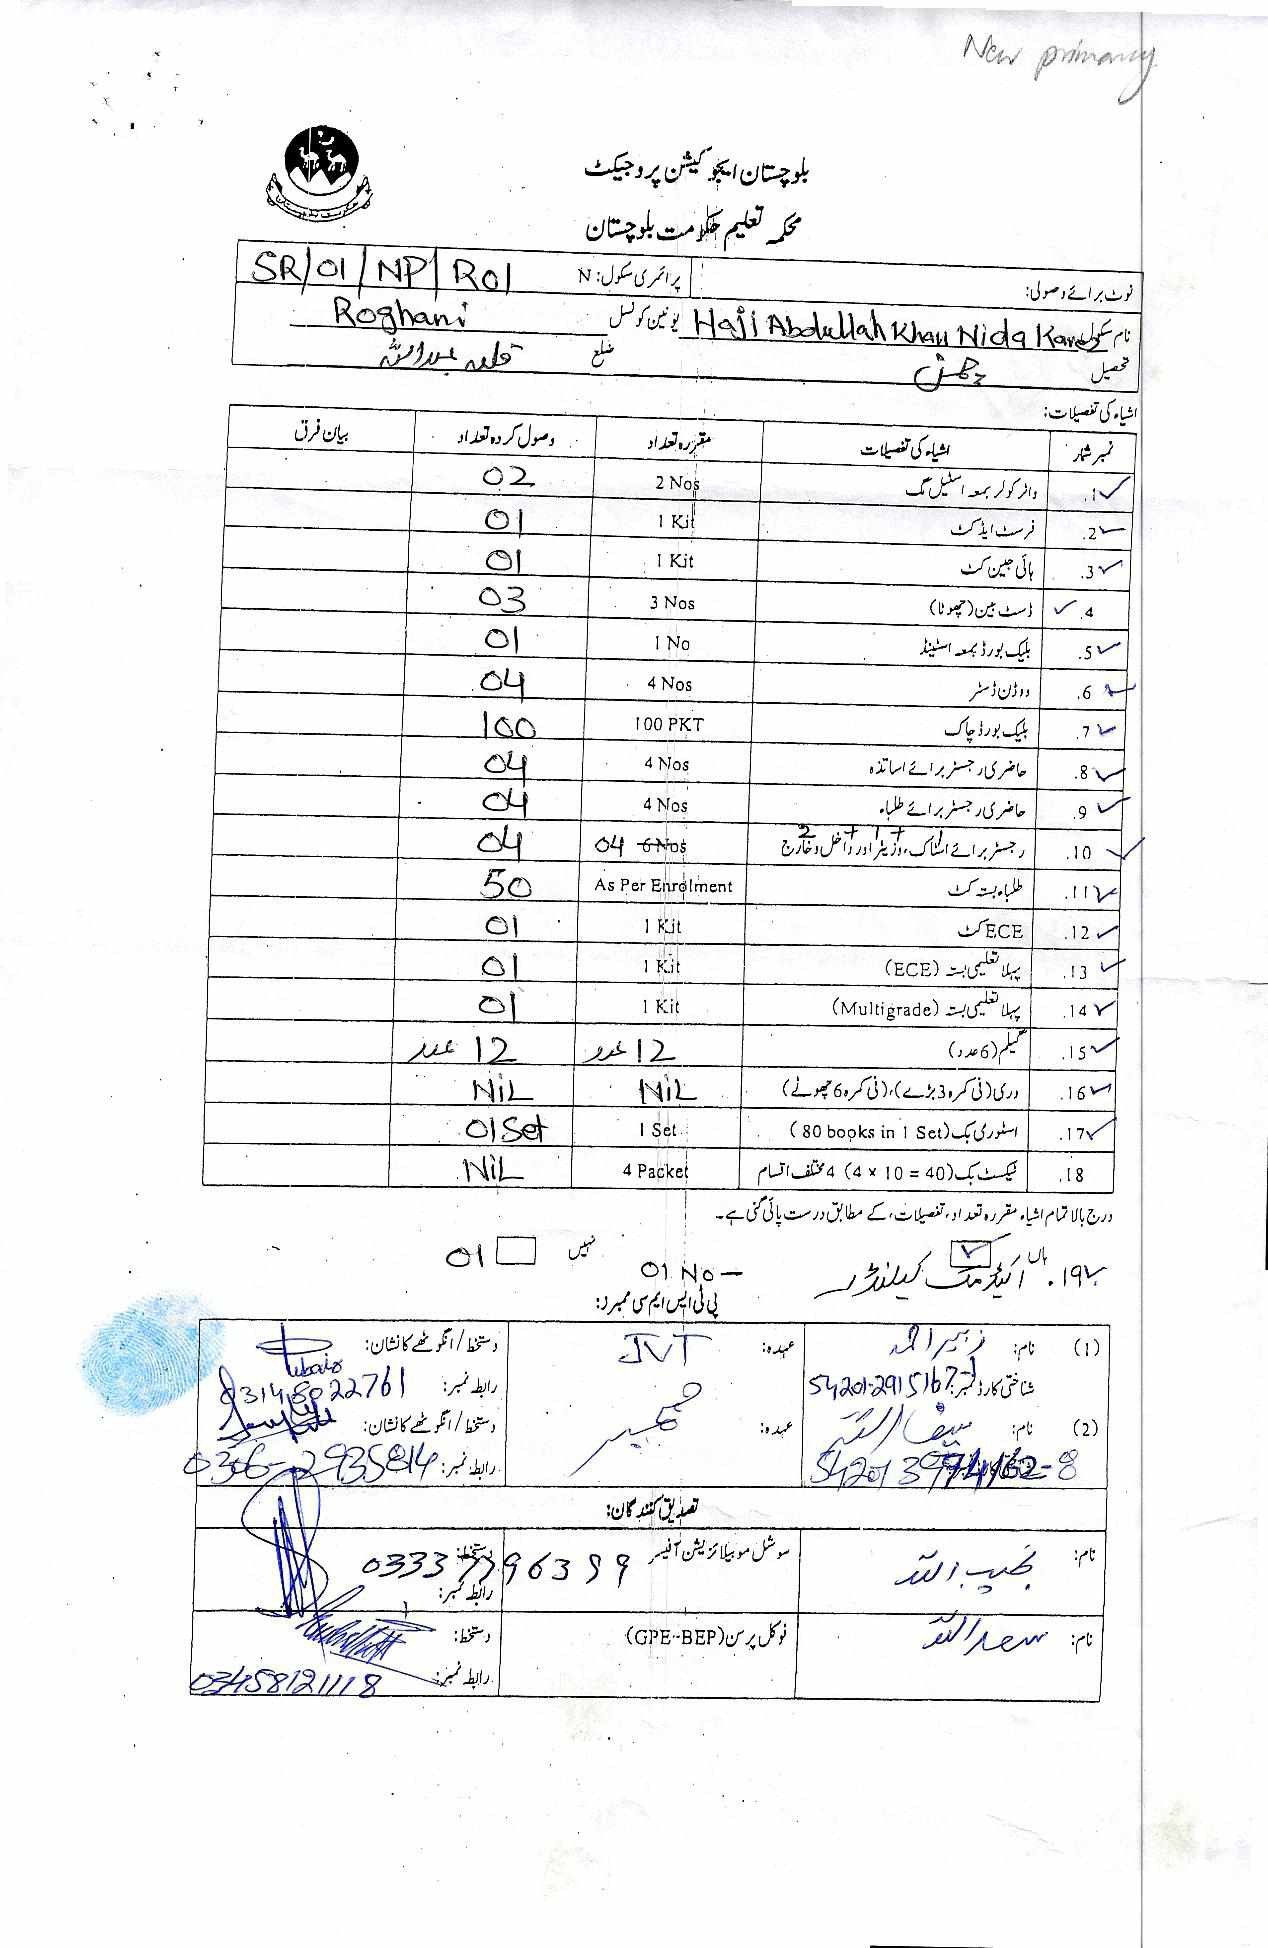 New primary
بلوچستان ایجوکیشن پروجیکٹ
محکمہ تعلیم حکومت بلوچستان
نوٹ برائے وصولی: پرائمری سکول: N SR/01/NP/R01
نام سکول Haji Abdullah Khan Nida Karez یونین کونسل Roghani
تحصیل چمن ضلع قلعہ عبداللہ
اشیاء کی تفصیلات:
نمبر شمار اشیاء کی تفصیلات مقررہ تعداد وصول کردہ تعداد بیان فرق
1. واٹر کولر بمعہ اسٹیل مگ 2 Nos 02
2. فرسٹ ایڈ کٹ 1 Kit 01
3. ہائی جین کٹ 1 Kit 01
4. ڈسٹ بین (چھوٹا) 3 Nos 03
5. بلیک بورڈ بمعہ اسٹینڈ 1 No 01
6. ووڈن ڈسٹر 4 Nos 04
7. بلیک بورڈ چاک 100 PKT 100
8. حاضری رجسٹر برائے اساتذہ 4 Nos 04
9. حاضری رجسٹر برائے طلباء 4 Nos 04
2 + 1 + 1
10. رجسٹر برائے اسٹاک، وزیٹر اور داخل و خارج 04 6 Nos 04
11. طلباء بستہ کٹ As Per Enrolment 50
12. ECE کٹ 1 Kit 01
13. پہلا تعلیمی بستہ (ECE) 1 Kit 01
14. پہلا تعلیمی بستہ (Multigrade) 1 Kit 01
15. گلیم (6 عدد) 12 عدد 12 عدد
16. دری (فی کمرہ 3 بڑے)، (فی کمرہ 6 چھوٹے) NiL NiL
17. اسٹوری بک (80 books in 1 Set) 1 Set 01 Set
18. ٹیکسٹ بک (4 x 10 = 40) 4 مختلف اقسام 4 Packet NiL
درج بالا تمام اشیاء مقررہ تعداد، تفصیلات، کے مطابق درست پائی گئی ہے۔
ہاں نہیں
19. اکیڈمک کیلنڈر 01 No - 01
پی ٹی ایس ایم سی ممبرز:
(1) نام: زبیر احمد عہدہ: JVT دستخط/انگوٹھے کا نشان: Zubair
شناختی کارڈ نمبر: رابطہ نمبر: 03148022761
(2) نام: سیف اللہ عہدہ: ممبر دستخط/انگوٹھے کا نشان:
رابطہ نمبر: 0306-2935814
تصدیق کنندگان:
نام: نجیب اللہ سوشل موبیلائزیشن آفیسر دستخط:
رابطہ نمبر:
نام: سعد اللہ فوکل پرسن (GPE-BEP) دستخط:
رابطہ نمبر: 03458121118